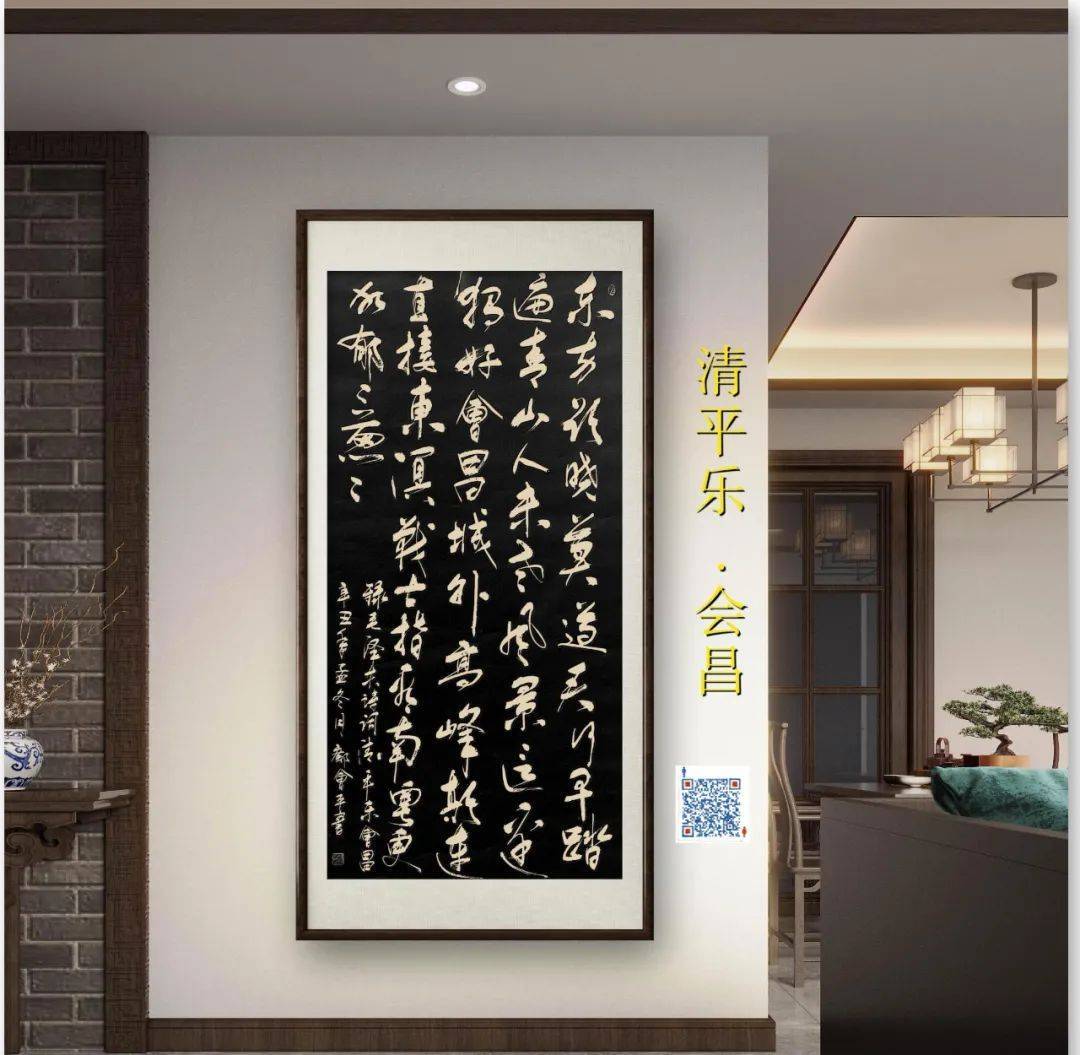 东方欲晓莫道君行早踏
遍青山人未老风景这边
独好會昌城外高峰颠连
直接東溟战士指看南粤更
加郁〻葱〻
録毛泽东诗词清平乐會昌
辛丑年孟冬月 會平書
清平乐·会昌